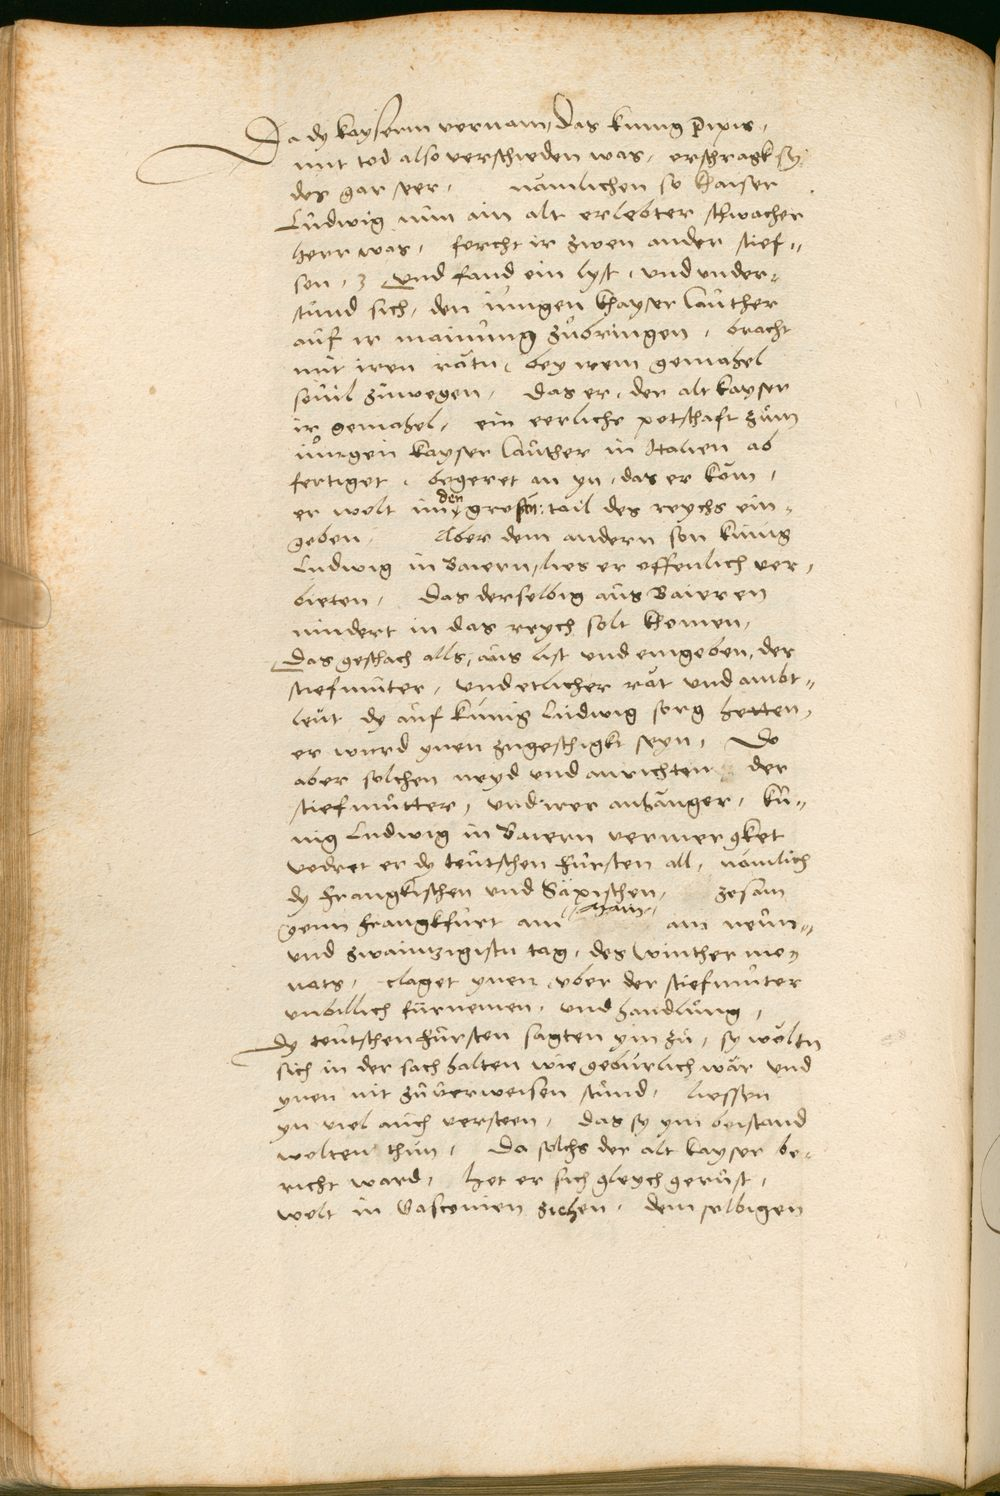 Da dy kayserin vernam, das kunig Pipis,
mit tod also verschieden was, erschragk sy
des gar seer, nämlichen so khaiser
Ludwig nun ain alt erlebter schwacher
herr was, forcht ir zwen ander stief„
son, und fand ein lyst, und under„
stund sich, den jungen khayser Lauther
auf ir mainung zubringen, bracht
mit iren rätn, bey irem gemahel
souil zuwegen, das er, der alt kayser
ir gemahel, ein eerliche potschaft zum
jungen kayser Lauther in Italien ab
fertiget, begeret an yn, das er köm,
er wolt im den grossen tail des reychs ein„
geben. Aber dem andern son kunig
Ludwig in Baiern, lies er offenlich ver„
bieten, das derselbig aus Baieren
nindert in das reych solt khomen,
Das geschach alls, aus list und eingeben, der
stiefmuter, und etlicher rät und ambt„
leut dy auf kunig Ludwig sorg hetten,
er wurd ynen zugeschigkt seyn, Do
aber solchen neyd und anrichten der
stiefmutter, und irer anhänger, ku„
nig Ludwig in Baiern vermergket
vodret er dy teutschen fursten all, nämlich
dy frangkischen und Säxischen, zesam
genn frangkfurt am Main, am neun„
und zwaintzigistn tag, des winthermo
nats, claget ynen, uber der stiefmuter
unbillich furnemen, und handlung,
Dy teutschen fursten sagten ym zu, sy wöltn
sich in der sach halten wie geburlich wär und
ynen nit zuverweisen stund, liessen
yn viel auch versteen, das sy ym beistand
wolten thun, Da solchs der alt kayser be„
richt ward, het er sich gleych gerust,
wolt in Vasconien ziehen, dem selbigen